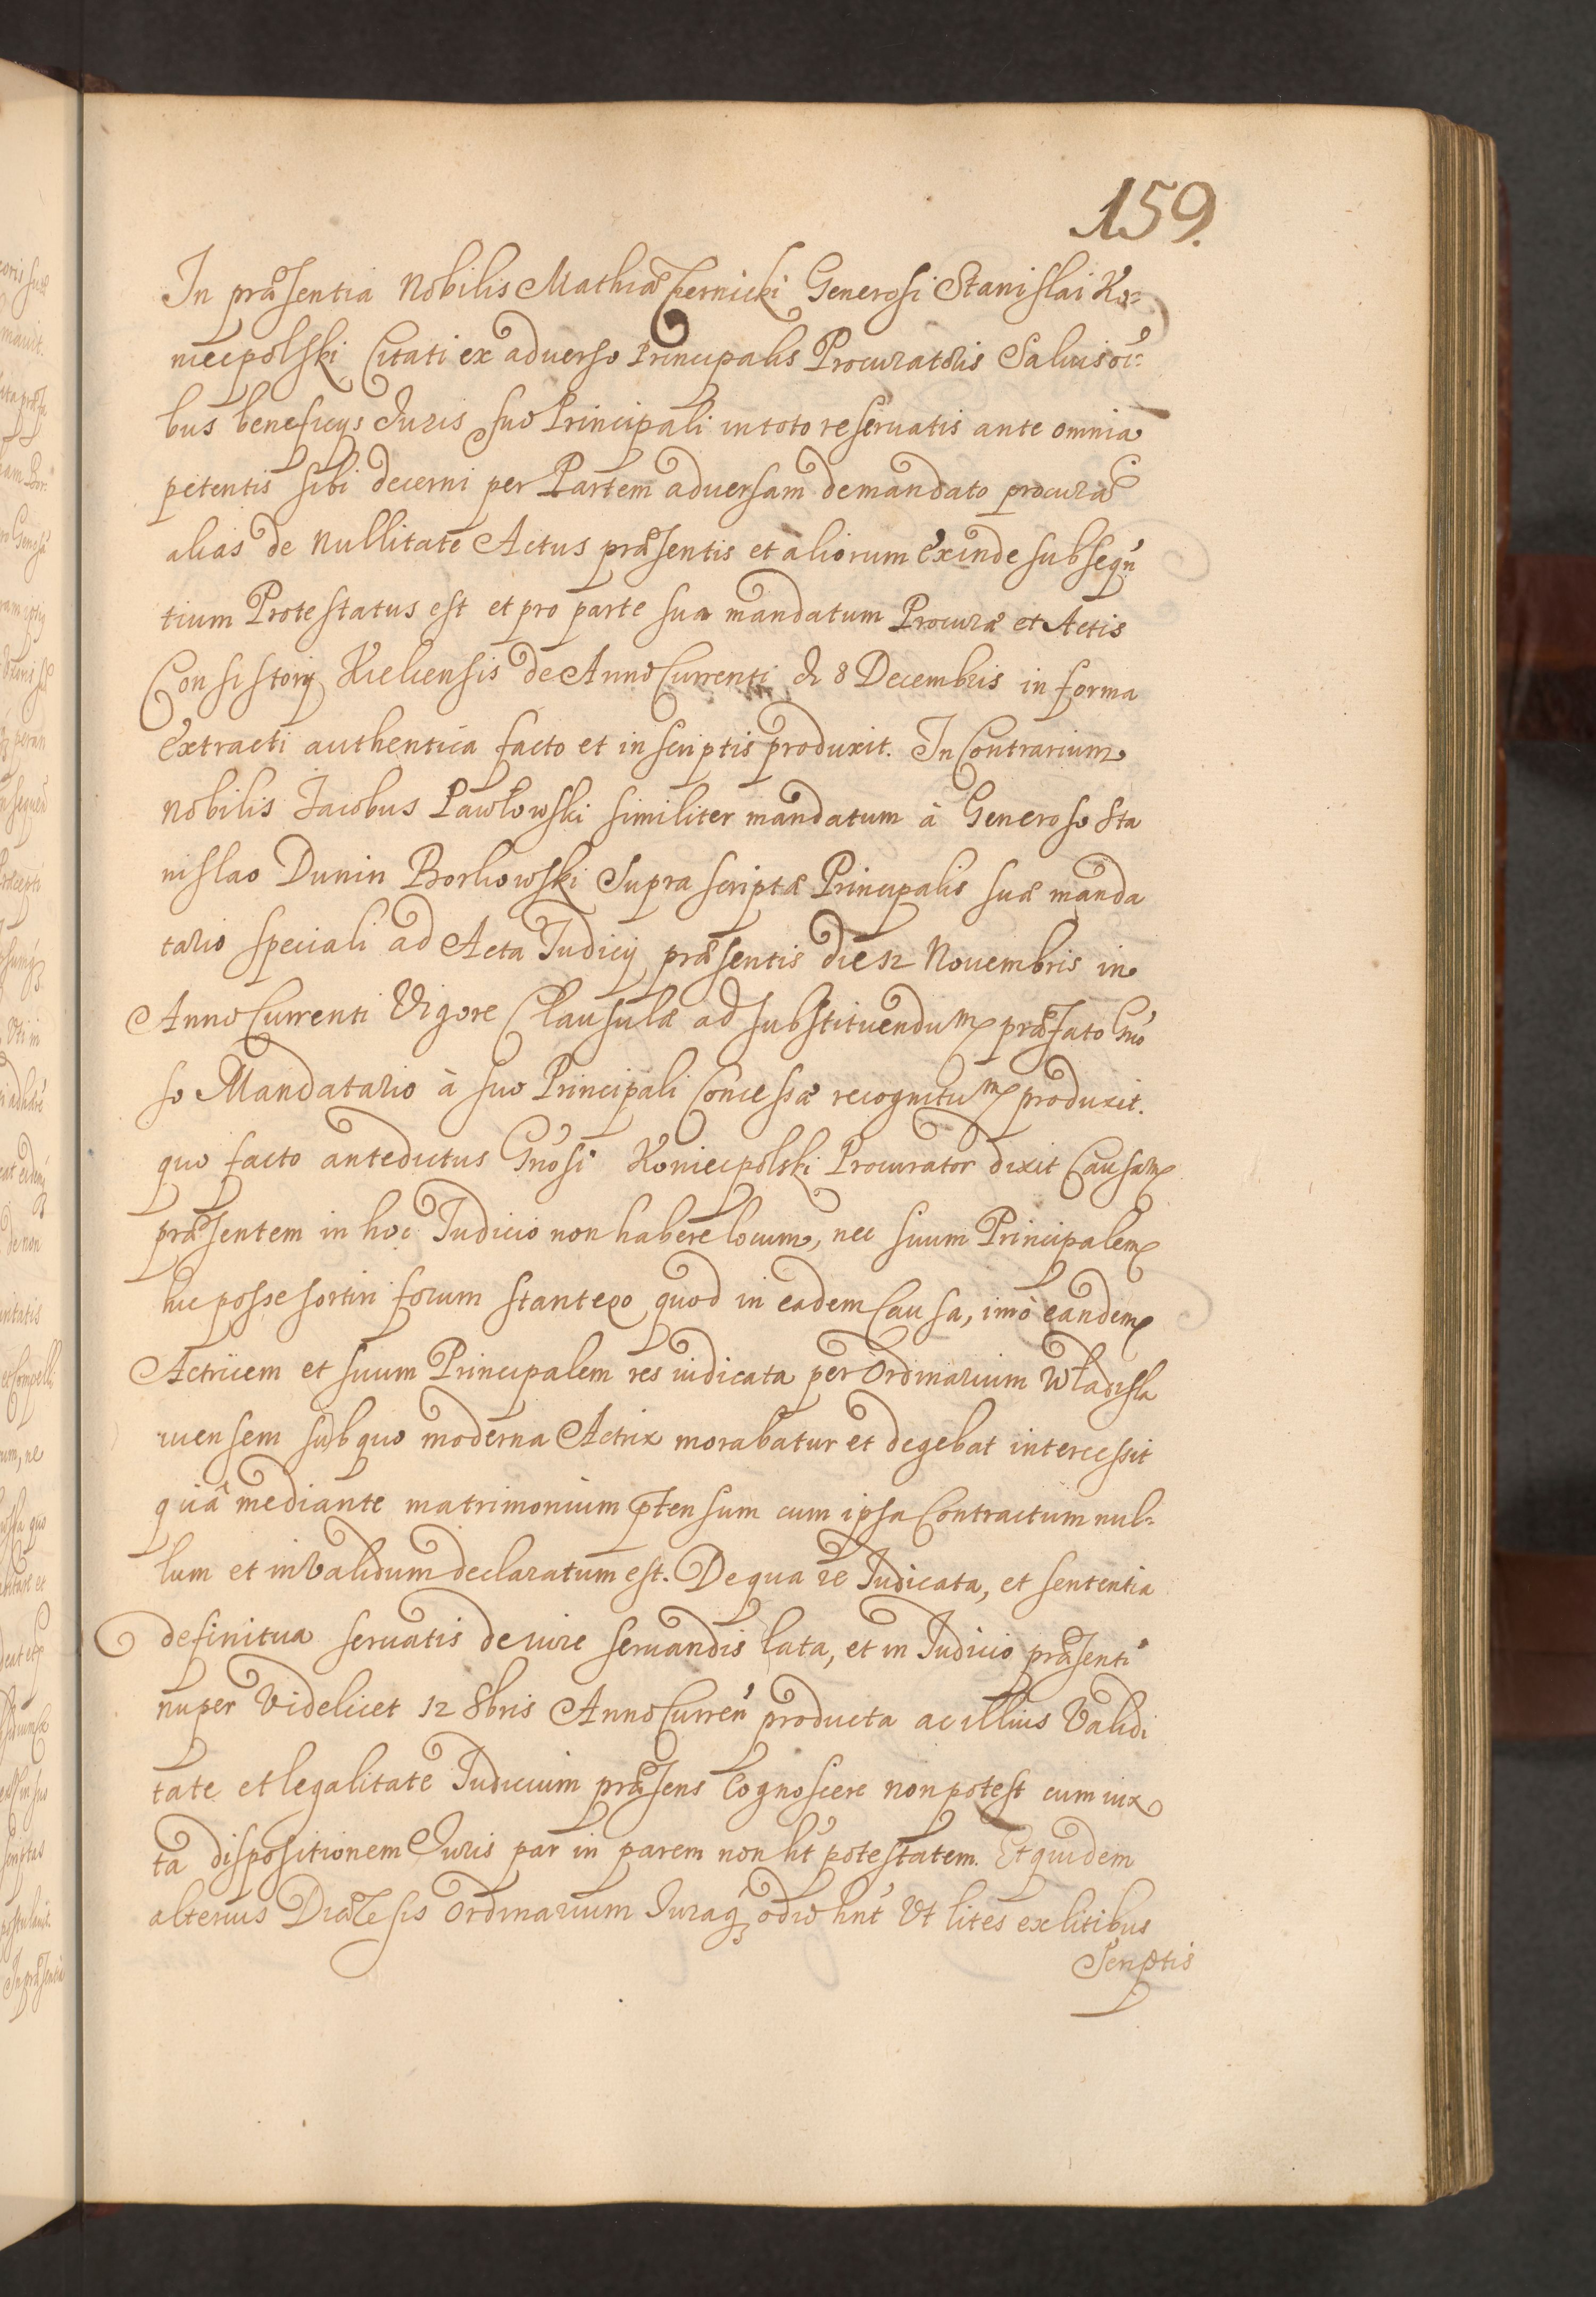 159.
In præsentia Nobilis Mathiæ Czernicki Generosi Stanislai Ko=
niecpolski Citati ex aduerso Principalis Procuratoris Saluis oi=
bus beneficijs Iuris suo Principali in toto reseruatis ante omnia
petentis sibi decerni per Partem aduersam de mandato procuræ
alias de Nullitate Actus præsentis et aliorum exinde subseqũ
tium Protestatus est et pro parte sua mandatum Procuræ et Actis
Consistorij Kielcensis de Anno Currenti d. 8 Decembris in forma
extracti authentica facto et in scriptis produxit. In Contrarium
Nobilis Jacobus Pawłowski similiter mandatum à Generoso Sta
nislao Dunin Borkowski Supra scriptæ Principalis suæ manda
tario speciali ad Acta Iudicij præsentis die 12 Nouembris in
Anno Currenti Vigore Clausulæ ad substituendum præfato Gño
so Mandatario à suo Principali Concessæ recognitum produxit.
quo facto antedictus Gñosi Koniecpolski Procurator dixit Causam
præsentem in hoc Iudicio non habere locum, nec suum Principalem
hic posse sortiri forum stante eo quod in eadem Causa, imò eandem
Actricem et suum Principalem res iudicata per Ordinarium Władisla
uiensem sub quo moderna Actrix morabatur et degebat intercessit
quâ mediante matrimonium p̃tensum cum ipsa Contractum nul=
lum et inValidum declaratum est. De qua re Iudicata, et sententia
definitiua seruatis de iure seruandis lata, et in Iudicio præsenti
nuper Videlicet 12 8bris Anno Curreñ producta ac illius Validi
tate et legalitate Iudicium præsens Cognoscere non potest cum iux
ta dispositionem Iuris par in parem non ht̃ potestatem. Et quidem
alterius Diæcesis Ordinarium Iuraq; odio hñt Vt lites ex litibus